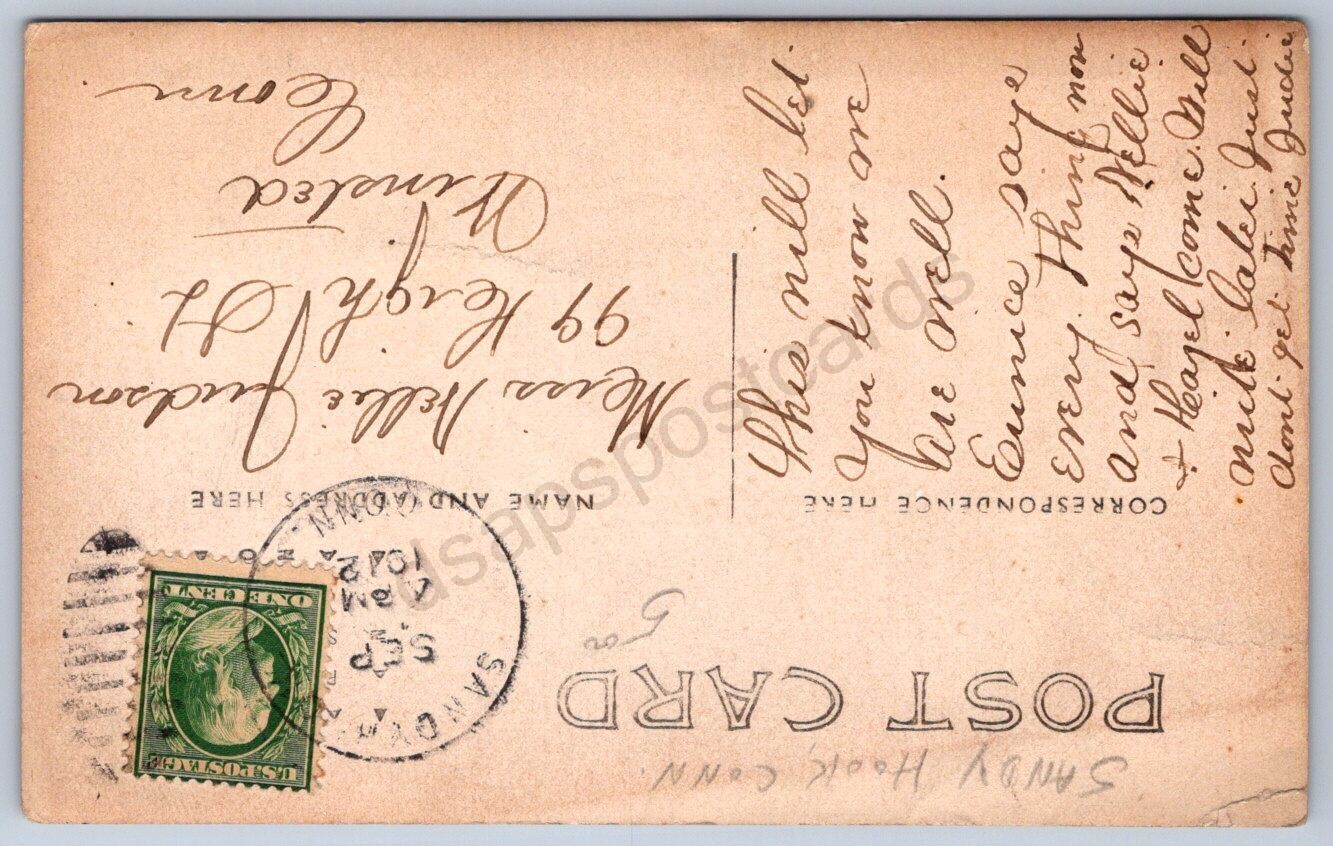 SANDY HOOK, CONN.
POST CARD
50
CORRESPONDENCE HERE
NAME AND ADDRESS HERE
SANDY
SEP
4 PM
1912
CONN.
U.S. POSTAGE
ONE CENT
This will let
you know we
are well.
Eunice says
every thing now
and says Nellie
+ Hazel come. Will
write later Just
dont get time Judie
Miss Nellie Judson
99 High St
Winsted
Conn
dsapspostcards